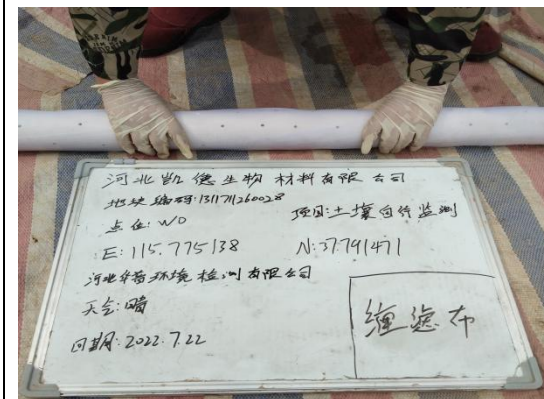 河北凯德生物材料有限公司
地块编码:1311711260028
点位:W0 项目:土壤自行监测
E:115.775138 N:37.791471
河北华普环境检测有限公司
天气:晴
日期:2022.7.22
缠滤布